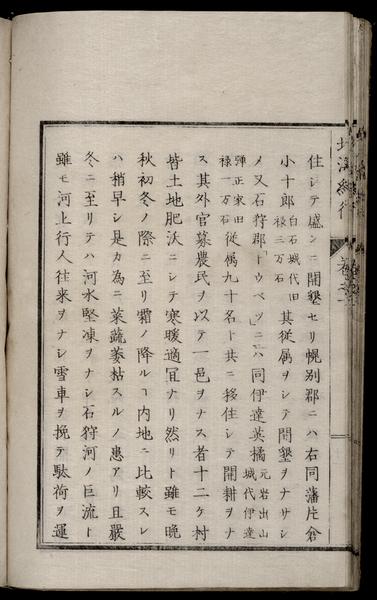 住シテ盛ンニ開墾セリ幌別郡ニハ右同藩片倉
小十郎白石城代旧禄三万石其従属ヲシテ開墾ヲナサシ
メ又石狩郡トウベツニハ同伊達英橘元岩出山城代伊達
弾正家旧禄一万石従属九十名ト共ニ移住シテ開耕ヲナ
ス其外官募農民ヲ以テ一邑ヲナス者十二ケ村
皆土地肥沃ニシテ寒暖適冝ナリ然リト雖モ晩
秋初冬ノ際ニ至リ霜ノ降ルヿ内地ニ比較スレ
ハ稍早シ是カ為ニ菜蔬萎枯スルノ患アリ且嚴
冬ニ至リテハ河水堅凍ヲナシ石狩河ノ巨流ト
雖モ河上行人往来ヲナシ雪車ヲ挽テ駄荷ヲ運